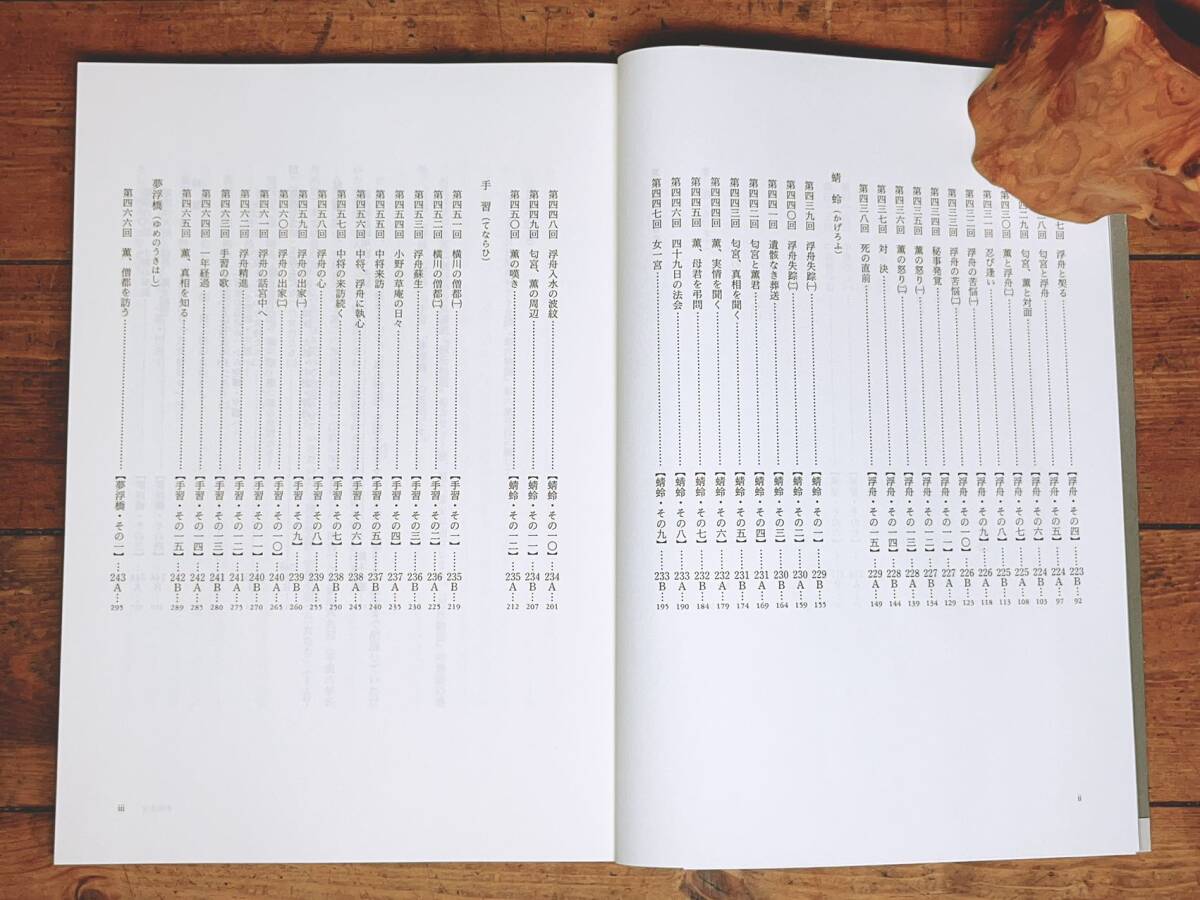 七回 浮舟と契る……【浮舟・その四】…223B…92
二八回 匂宮と浮舟……【浮舟・その五】…224A…97
二九回 匂宮、薫と対面……【浮舟・その六】…224B…103
三〇回 薫と浮舟㈡……【浮舟・その七】…225A…108
第四三一回 忍び逢い……【浮舟・その八】…225B…113
第四三二回 浮舟の苦悩㈠……【浮舟・その九】…226A…118
第四三三回 浮舟の苦悩㈡……【浮舟・その一〇】…226B…123
第四三四回 秘事発覚……【浮舟・その一一】…227A…129
第四三五回 薫の怒り㈠……【浮舟・その一二】…227B…134
第四三六回 薫の怒り㈡……【浮舟・その一三】…228A…139
第四三七回 対決……【浮舟・その一四】…228B…144
第四三八回 死の直前……【浮舟・その一五】…229A…149
蜻蛉（かげろふ）
第四三九回 浮舟失踪㈠……【蜻蛉・その一】…229B…155
第四四〇回 浮舟失踪㈡……【蜻蛉・その二】…230A…159
第四四一回 遺骸なき葬送……【蜻蛉・その三】…230B…164
第四四二回 匂宮と薫君……【蜻蛉・その四】…231A…169
第四四三回 匂宮、真相を聞く……【蜻蛉・その五】…231B…174
第四四四回 薫、実情を聞く……【蜻蛉・その六】…232A…179
第四四五回 薫、母君を弔問……【蜻蛉・その七】…232B…184
第四四六回 四十九日の法会……【蜻蛉・その八】…233A…190
第四四七回 女一宮……【蜻蛉・その九】…233B…195
ii
第四四八回 浮舟入水の波紋……【蜻蛉・その一〇】…234A…201
第四四九回 匂宮、薫の周辺……【蜻蛉・その一一】…234B…207
第四五〇回 薫の嘆き……【蜻蛉・その一二】…235A…212
手習（てならひ）
第四五一回 横川の僧都㈠……【手習・その一】…235B…219
第四五二回 横川の僧都㈡……【手習・その二】…236A…225
第四五三回 浮舟蘇生……【手習・その三】…236B…230
第四五四回 小野の草庵の日々……【手習・その四】…237A…235
第四五五回 中将来訪……【手習・その五】…237B…240
第四五六回 中将、浮舟に執心……【手習・その六】…238A…245
第四五七回 中将の来訪続く……【手習・その七】…238B…250
第四五八回 浮舟の心……【手習・その八】…239A…255
第四五九回 浮舟の出家㈠……【手習・その九】…239B…260
第四六〇回 浮舟の出家㈡……【手習・その一〇】…240A…265
第四六一回 浮舟の話宮中へ……【手習・その一一】…240B…270
第四六二回 浮舟精進……【手習・その一二】…241A…275
第四六三回 手習の歌……【手習・その一三】…241B…280
第四六四回 一年経過……【手習・その一四】…242A…285
第四六五回 薫、真相を知る……【手習・その一五】…242B…289
夢浮橋（ゆめのうきはし）
第四六六回 薫、僧都を訪う……【夢浮橋・その一】…243A…295
iii